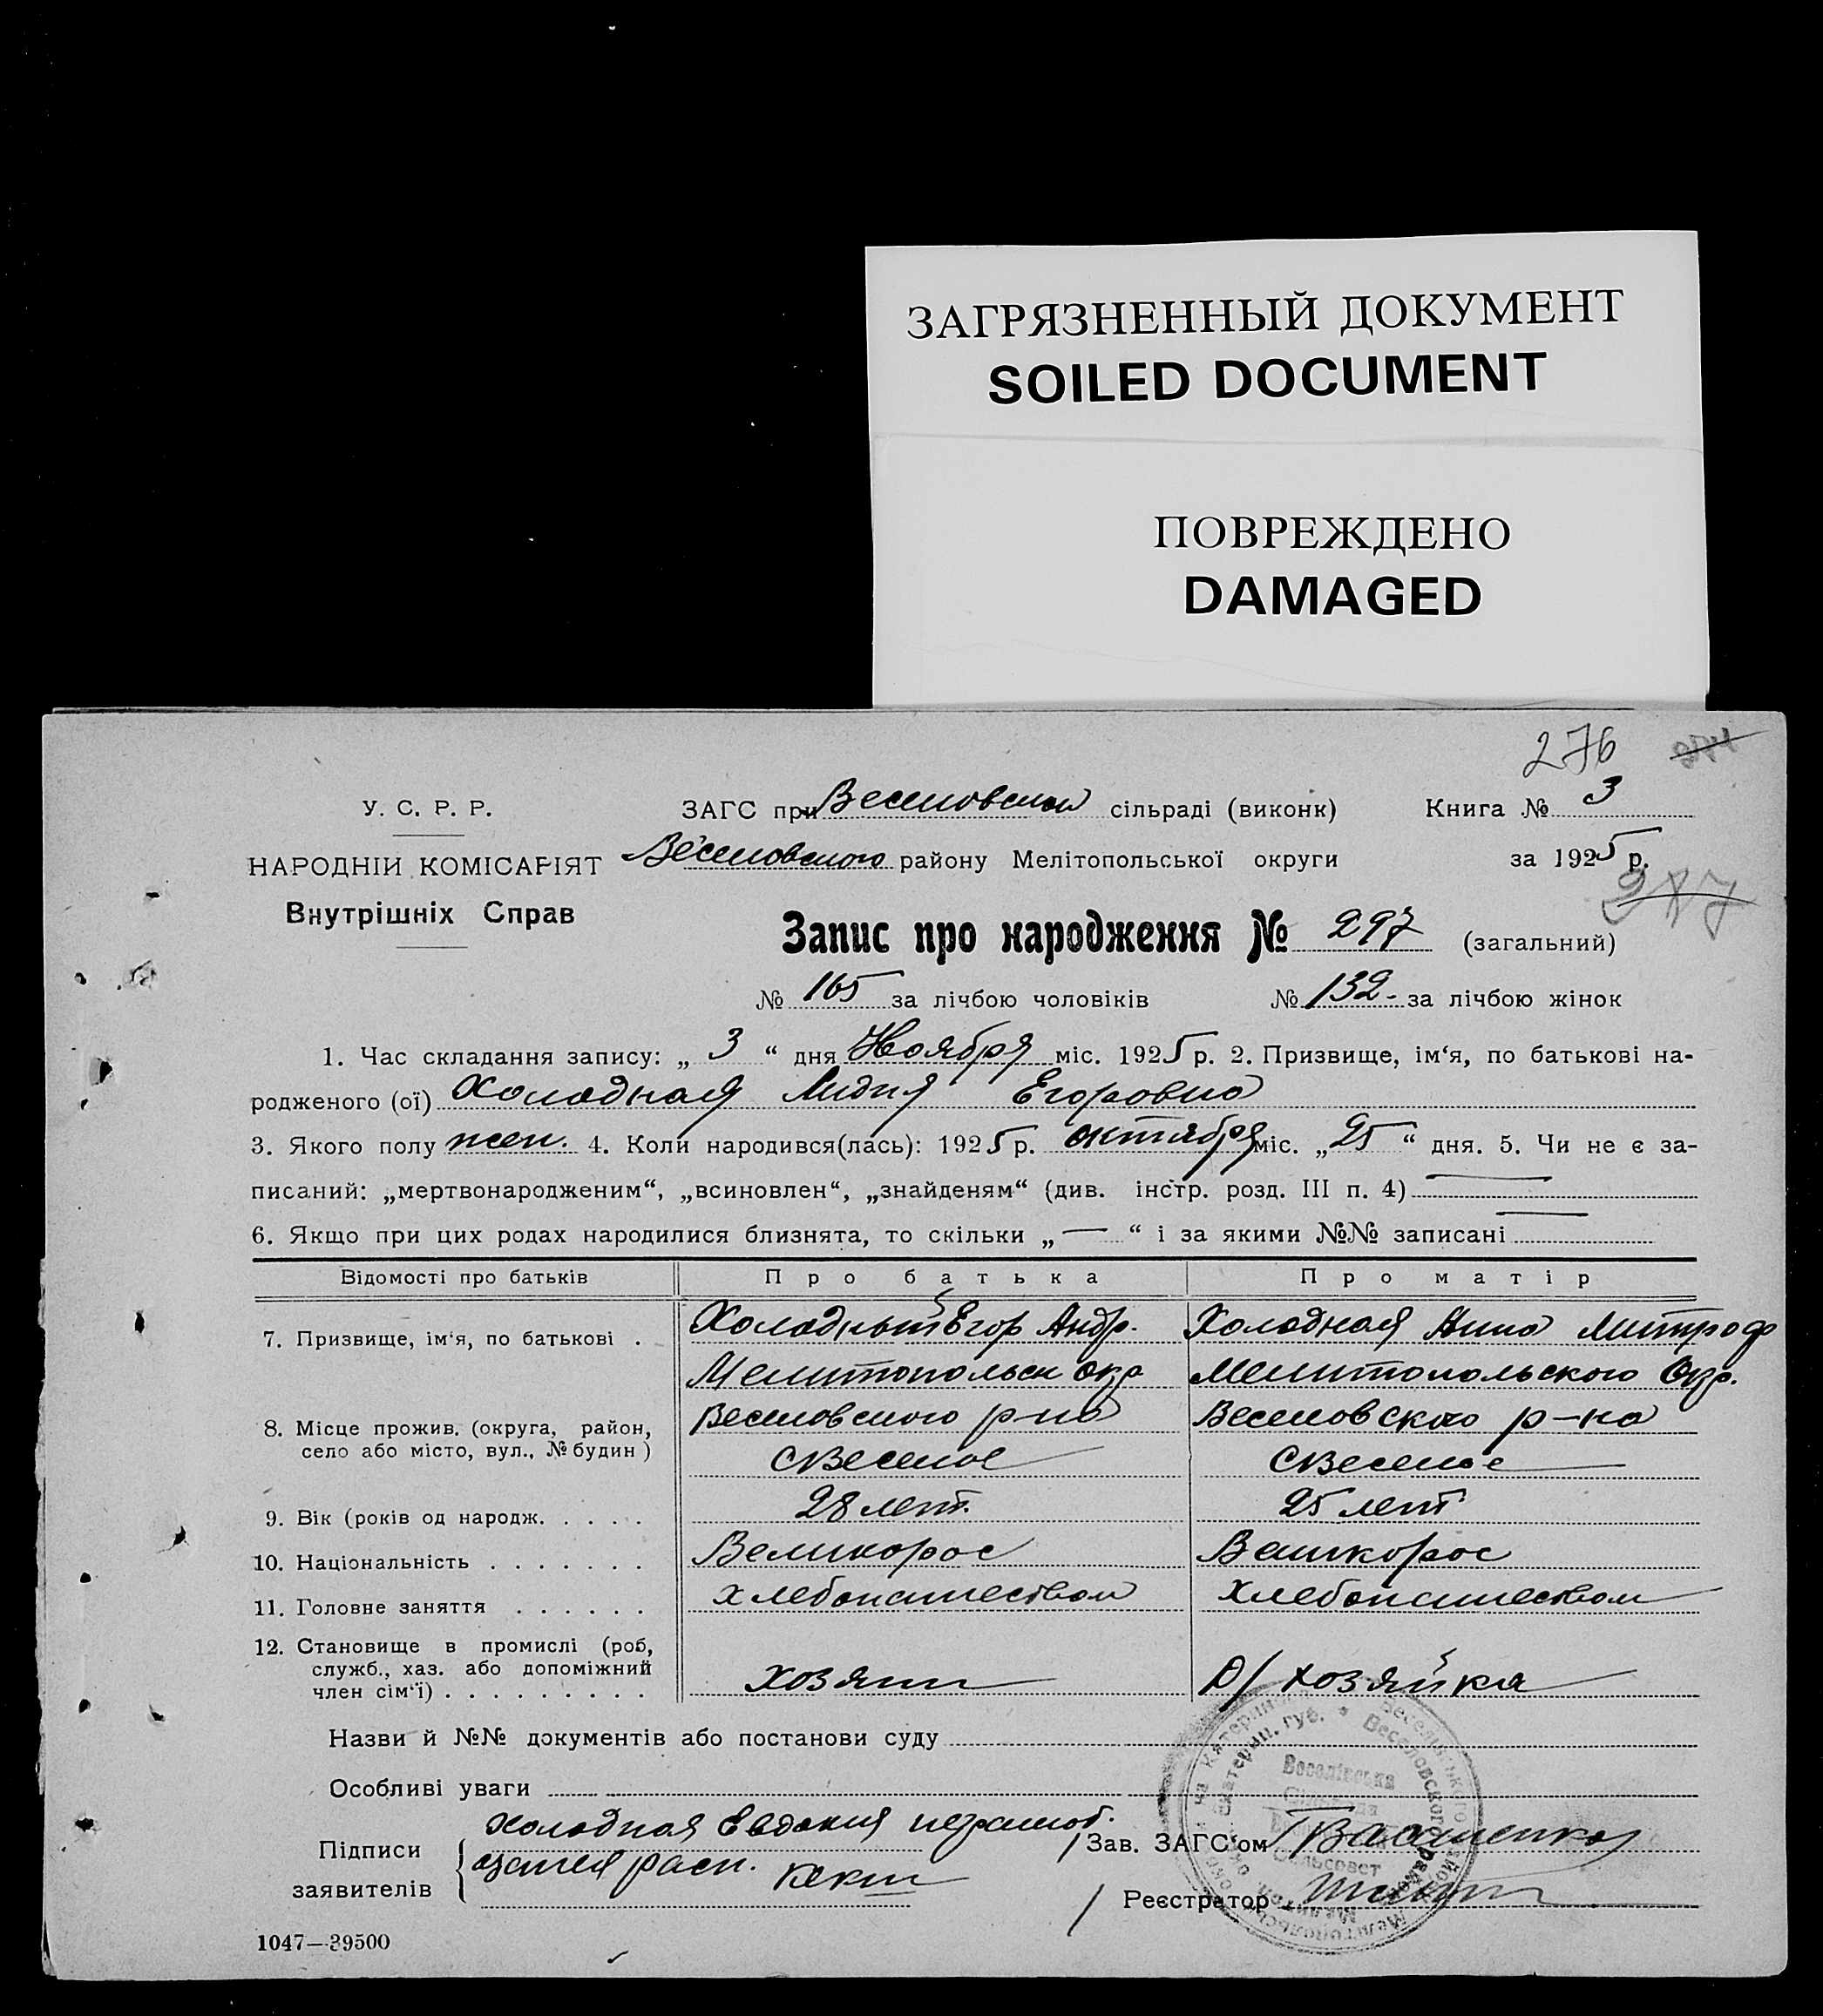 ЗАГРЯЗНЕННЫЙ ДОКУМЕНТ
SOILED DOCUMENT
ПОВРЕЖДЕНО
DAMAGED
276
У. С. Р. Р.
НАРОДНІЙ КОМІСАРІЯТ
Внутрішніх Справ
ЗАГС при Веселовском сільраді (виконк) Книга № 3
Веселовского району Мелітопольської округи за 1925 р.
317
Запис про народження № 297 (загальний)
№ 165 за лічбою чоловіків № 132 за лічбою жінок
1. Час складання запису: „ 3 “ дня Ноября міс. 1925 р. 2. Призвище, ім‘я, по батькові на-
родженого (ої) Холодная Лидия Егоровна
3. Якого полу жен. 4. Коли народився(лась): 1925 р. октября міс. „25“ дня. 5. Чи не є за-
писаний: „мертвонародженим“, „всиновлен“, „знайденям“ (див. інстр. розд. III п. 4) —
6. Якщо при цих родах народилися близнята, то скільки „ — “ і за якими №№ записані —
Відомості про батьків Про батька Про матір
7. Призвище, ім‘я, по батькові . Холодный Егор Андр. Холодная Анна Митроф
8. Місце прожив. (округа, район, село або місто, вул., № будин ) Мелитопольск Окр Мелитопольского Окр.
Веселовского р-на Веселовского р-на
с Веселое с Веселое
9. Вік (років од народж. . . . . 28 лет. 25 лет
10. Національність . . . . . . . Великорос Великорос
11. Головне заняття . . . . . . хлебопашеством хлебопашеством
12. Становище в промислі (роб, служб., хаз. або допоміжний член сім‘ї) . . . . . . . . . хозяин Д/хозяйка
Назви й №№ документів або постанови суду
Особливі уваги
Підписи заявителів Холодная Евдокия неграмот.
за нея расп.
Зав. ЗАГС‘ом
Реєстратор
Веселівська
Сільрада
Сельсовет
1047—39500